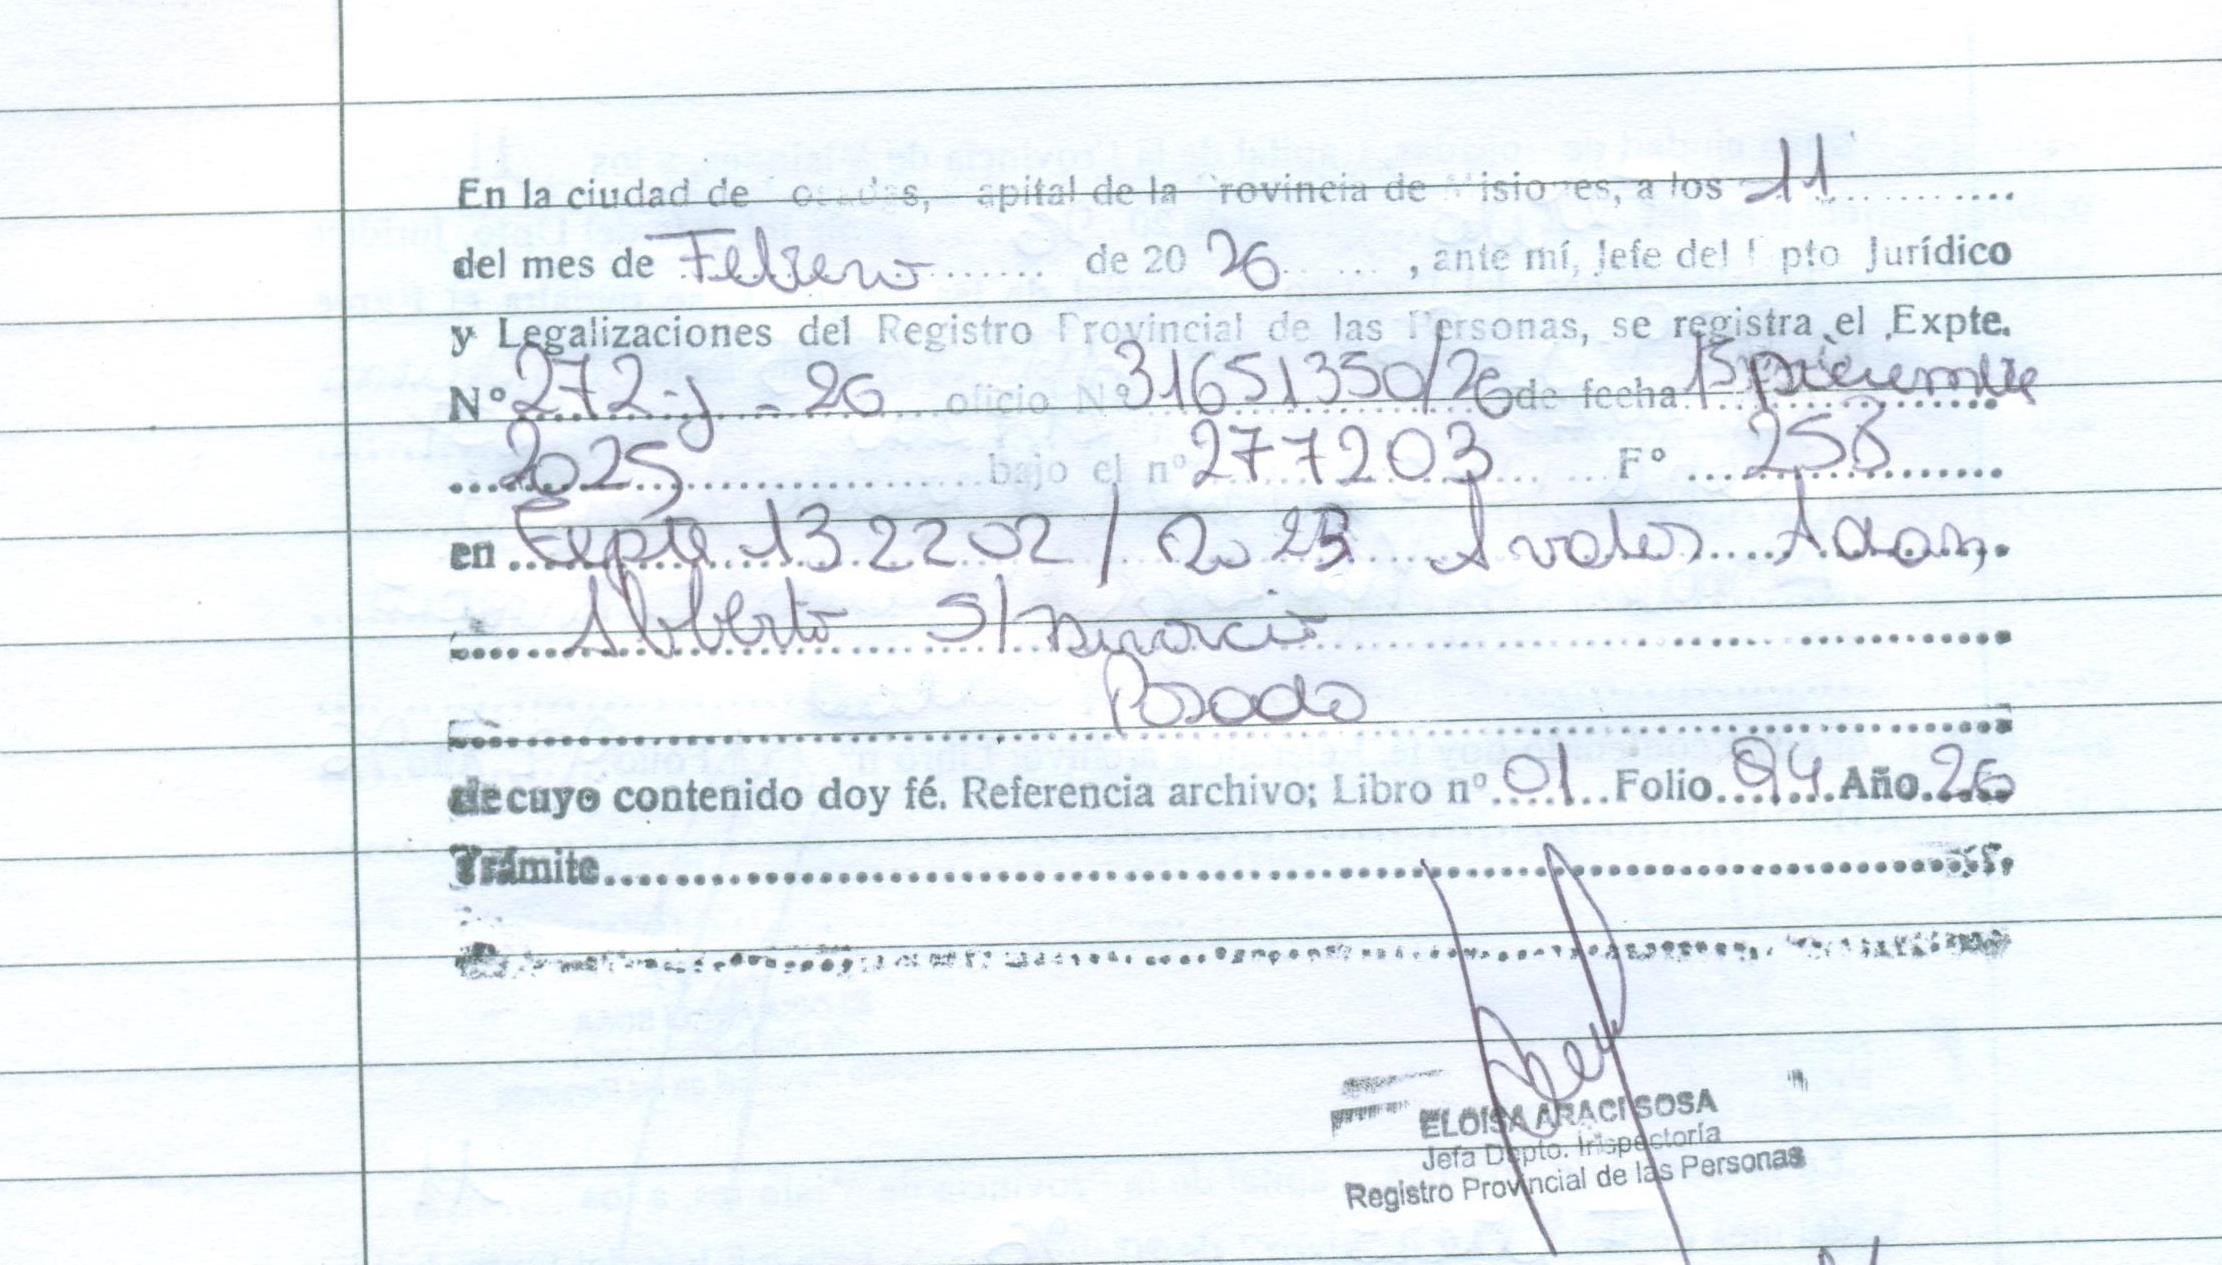 En la ciudad de Posadas, Capital de la Provincia de Misiones, a los 11
del mes de Febrero de 20 26, ante mí, Jefe del Dpto Jurídico
y Legalizaciones del Registro Provincial de las Personas, se registra el Expte.
Nº 272-J-26 oficio Nº 31651350/26 de fecha
2025 bajo el nº 277203 Fº 258
en Expte 132202/2023 Avalos Adan,
Alberto S/ Divorcio
Posadas
de cuyo contenido doy fé. Referencia archivo; Libro nº 01 Folio 94 Año 26
Trámite
ELOISA ARACI SOSA
Jefa Dpto. Inspectoría
Registro Provincial de las Personas